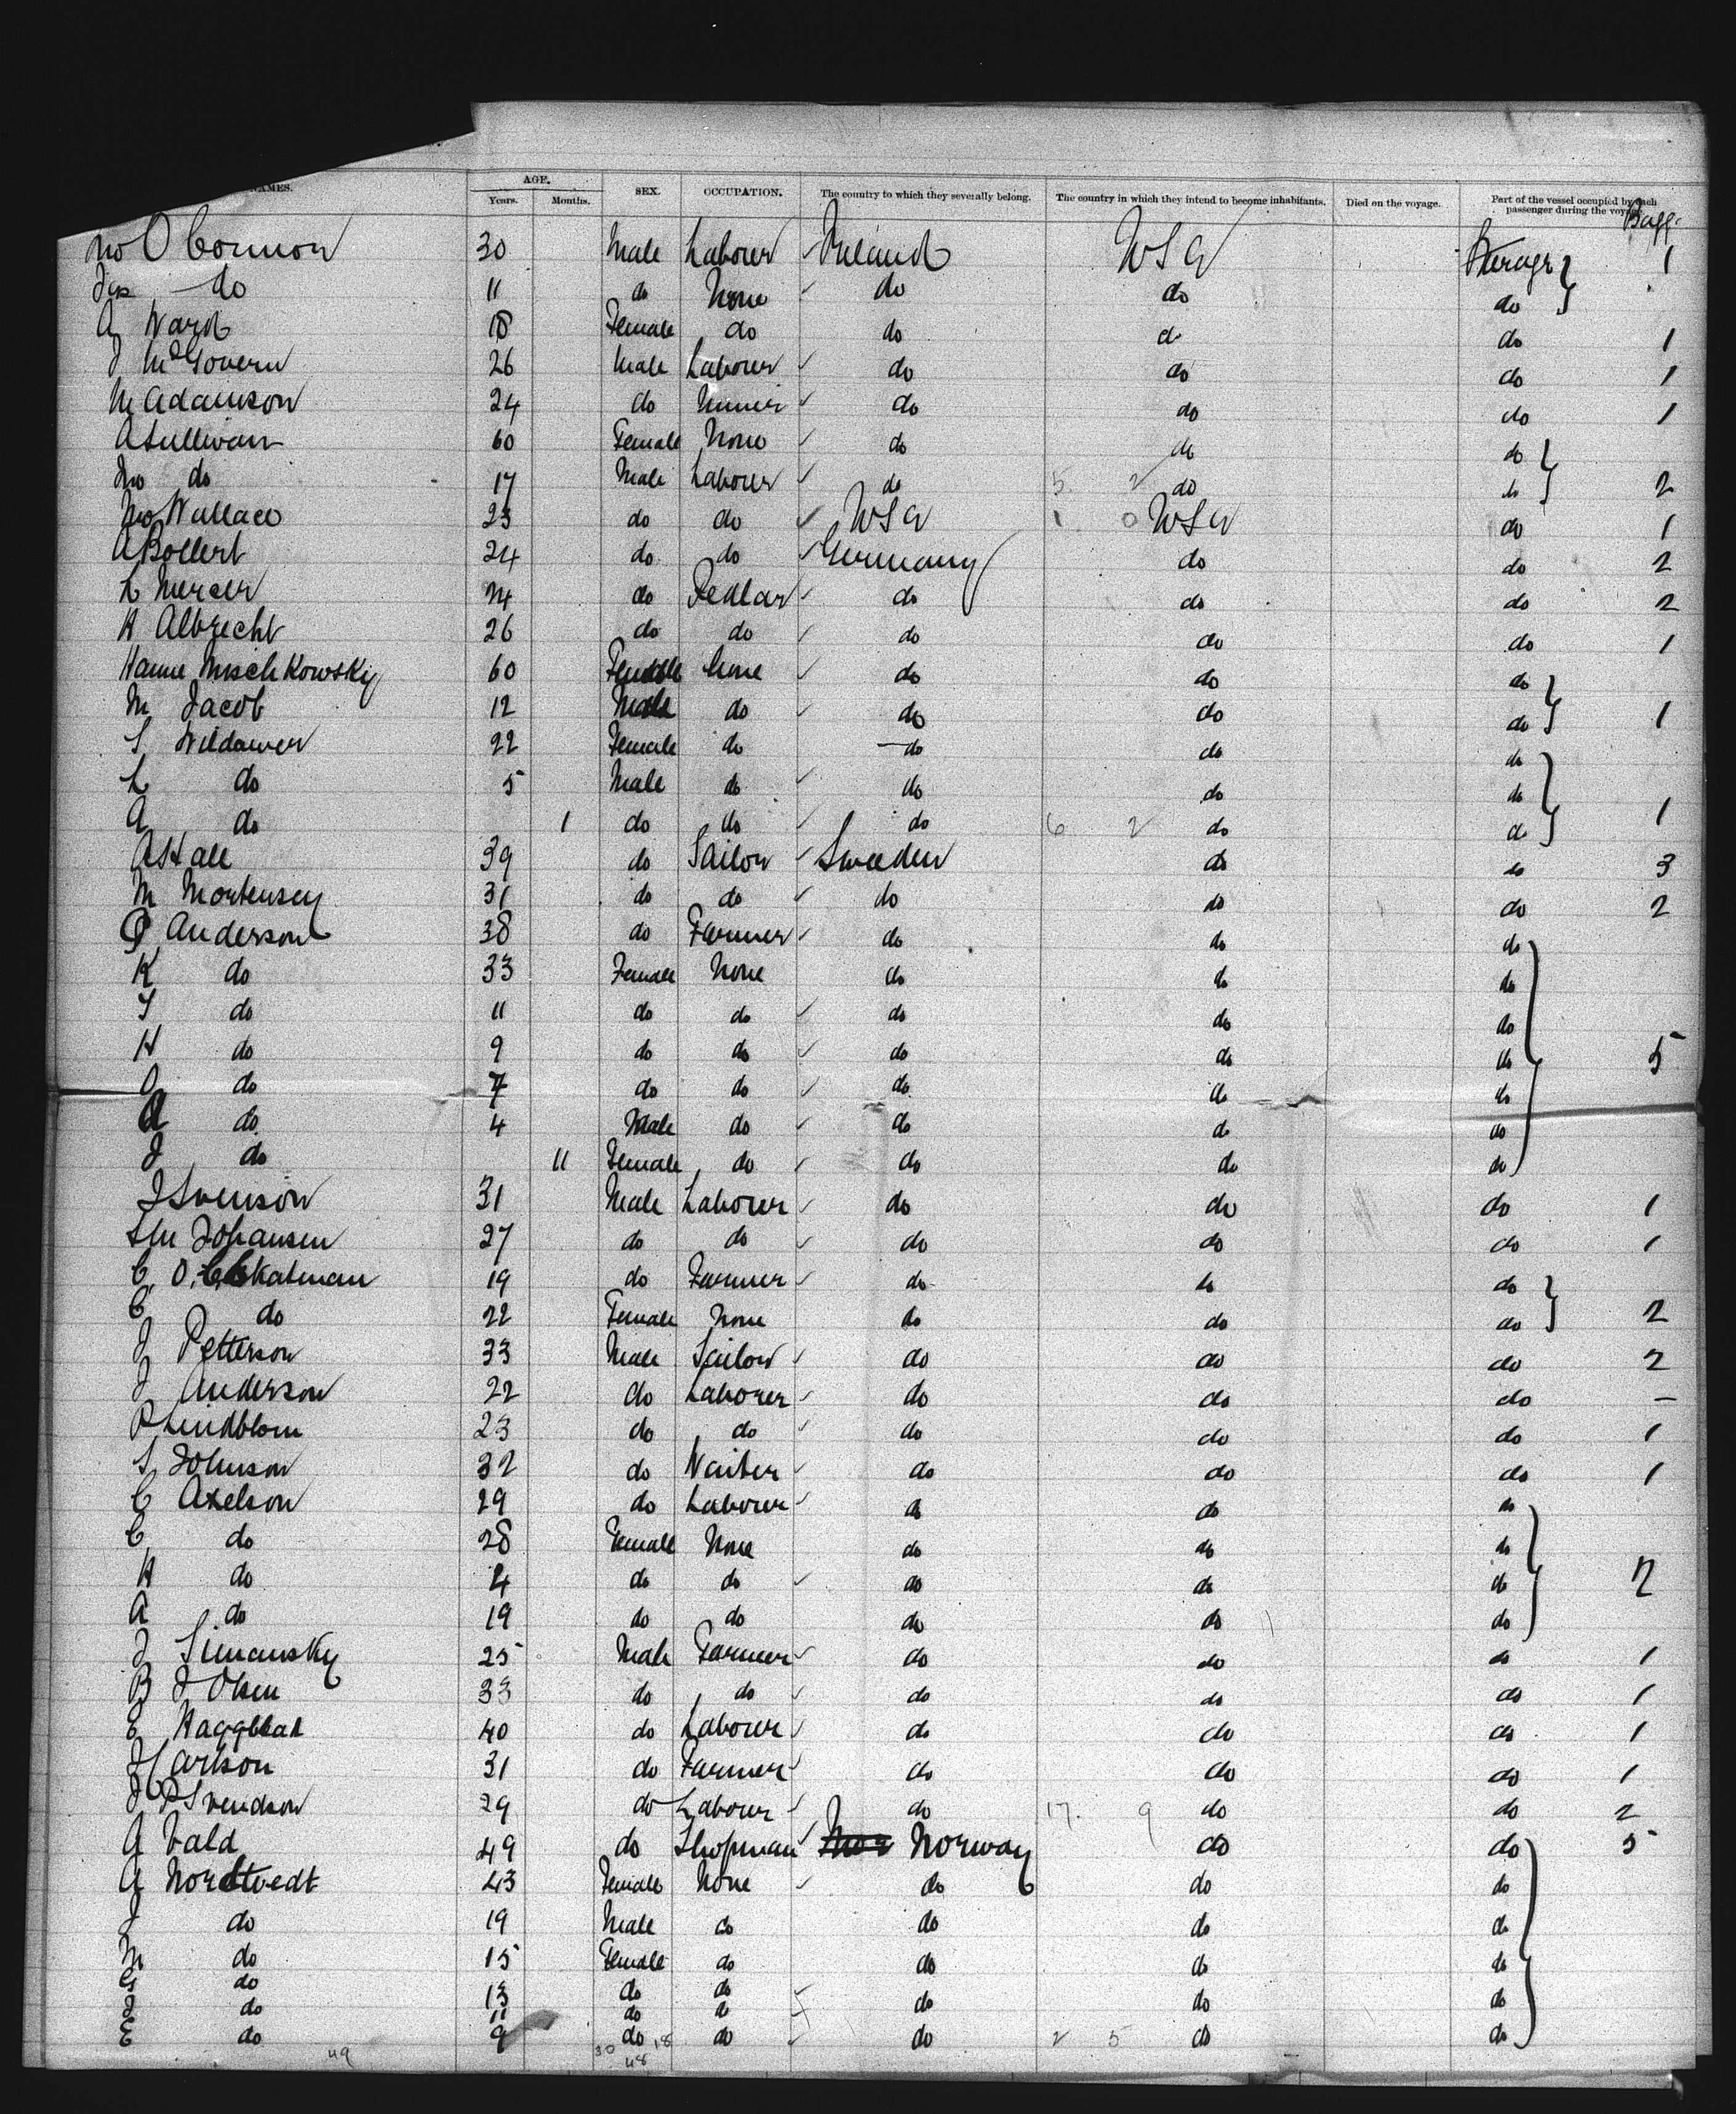 NAMES. AGE. SEX. OCCUPATION. The country to which they severally belong. The country in which they intend to become inhabitants. Died on the voyage. Part of the vessel occupied by each passenger during the voyage
Years. Months. Bagg.
Jno O Connor 30 Male Laborer Ireland USA Steerage 1
do 11 do None do do do
A Ward 18 Female do do d do 1
J McGovern 26 Male Laborer do do do 1
M Adamson 24 do Miner do do do 1
A Sullivan 60 Female None do do do
Jno do 17 Male Laborer do 5 2 do do 2
Jno Wallace 23 do do USA 1 0 USA do 1
A Bollert 24 do do Germany do do 2
L Mercer 24 do Pedlar do do do 2
H Albrecht 26 do do do do do 1
Hanne Mischkowsky 60 Female None do do do
M Jacob 12 Male do do do do 1
S Wildawer 22 Female do do do do
L do 5 Male do do do do
A do 1 do do do 6 2 do do 1
A Hall 39 do Sailor Sweden do do 3
M Mortensen 31 do do do do do 2
P Anderson 38 do Farmer do do do
K do 33 Female None do do do
S do 11 do do do do do
H do 9 do do do do do 5
O do 7 do do do do do
A do 4 Male do do do do
J do 11 Female do do do do
J Svenson 31 Male Laborer do do do 1
Johansen 27 do do do do do 1
C O Skatman 19 do Farmer do do do
C do 22 Female None do do do 2
J Petterson 33 Male Sailor do do do 2
J Anderson 22 do Laborer do do do –
P Lindblom 23 do do do do do 1
S Johnson 32 do Waiter do do do 1
C Axelson 29 do Laborer do do do
C do 28 Female None do do do
H do 4 do do do do do 2
A do 19 do do do do do
J Simansky 25 Male Farmer do do do 1
B J Olsen 33 do do do do do 1
E Haggblad 40 do Laborer do do do 1
J Carlson 31 do Farmer do do do 1
J P Svendson 29 do Labour do 17. 9 do do 2
A Vald 49 do Shopman Nor Norway do do 5
A Nordtvedt 43 Female None do do do
J do 19 Male do do do do
M do 15 Female do do do do
G do 13 do do do do do
do 11 do do
E do 9 do do do 2 5 do do
49 30 18
48